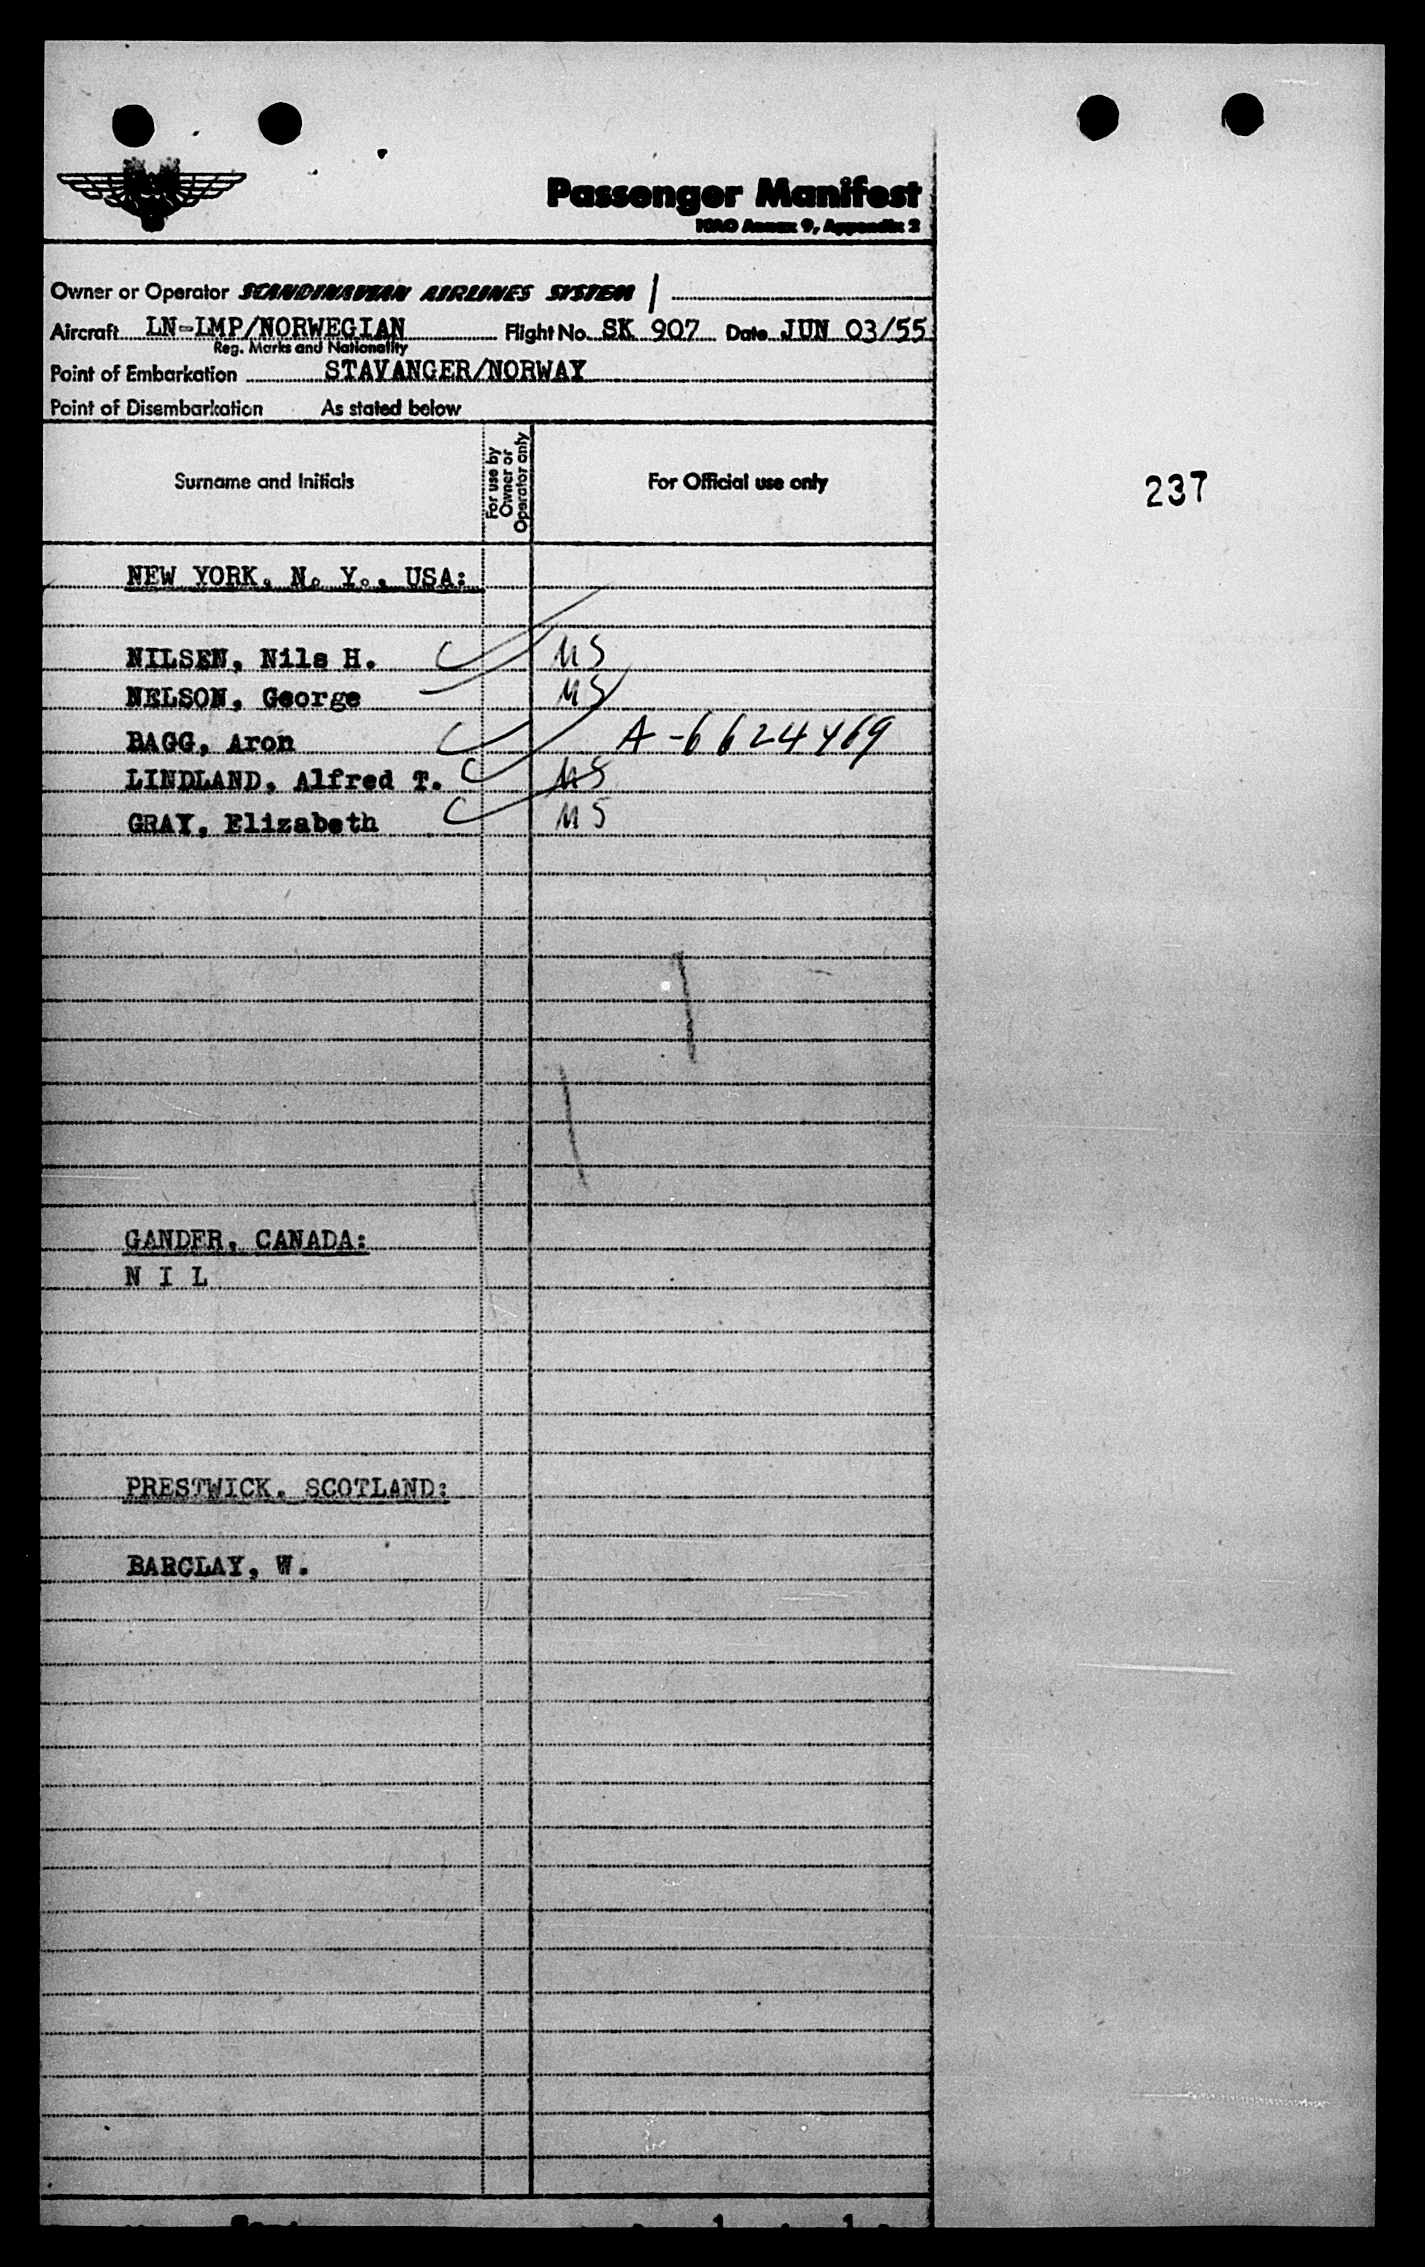 Passenger Manifest
ICAO Annex 9, Appendix 2
Owner or Operator SCANDINAVIAN AIRLINES SYSTEM
Aircraft LN-LMP/NORWEGIAN Flight No. SK 907 Date JUN 03/55
Reg. Marks and Nationality
Point of Embarkation STAVANGER/NORWAY
Point of Disembarkation As stated below
Surname and Initials
For use by
Owner or
Operator only
For Official use only
237
NEW YORK, N. Y., USA:
NILSEN, Nils H. US
NELSON, George US
BAGG, Aron A-6624469
LINDLAND, Alfred T. US
GRAY, Elizabeth US
GANDER, CANADA:
N I L
PRESTWICK, SCOTLAND:
BARCLAY, W.